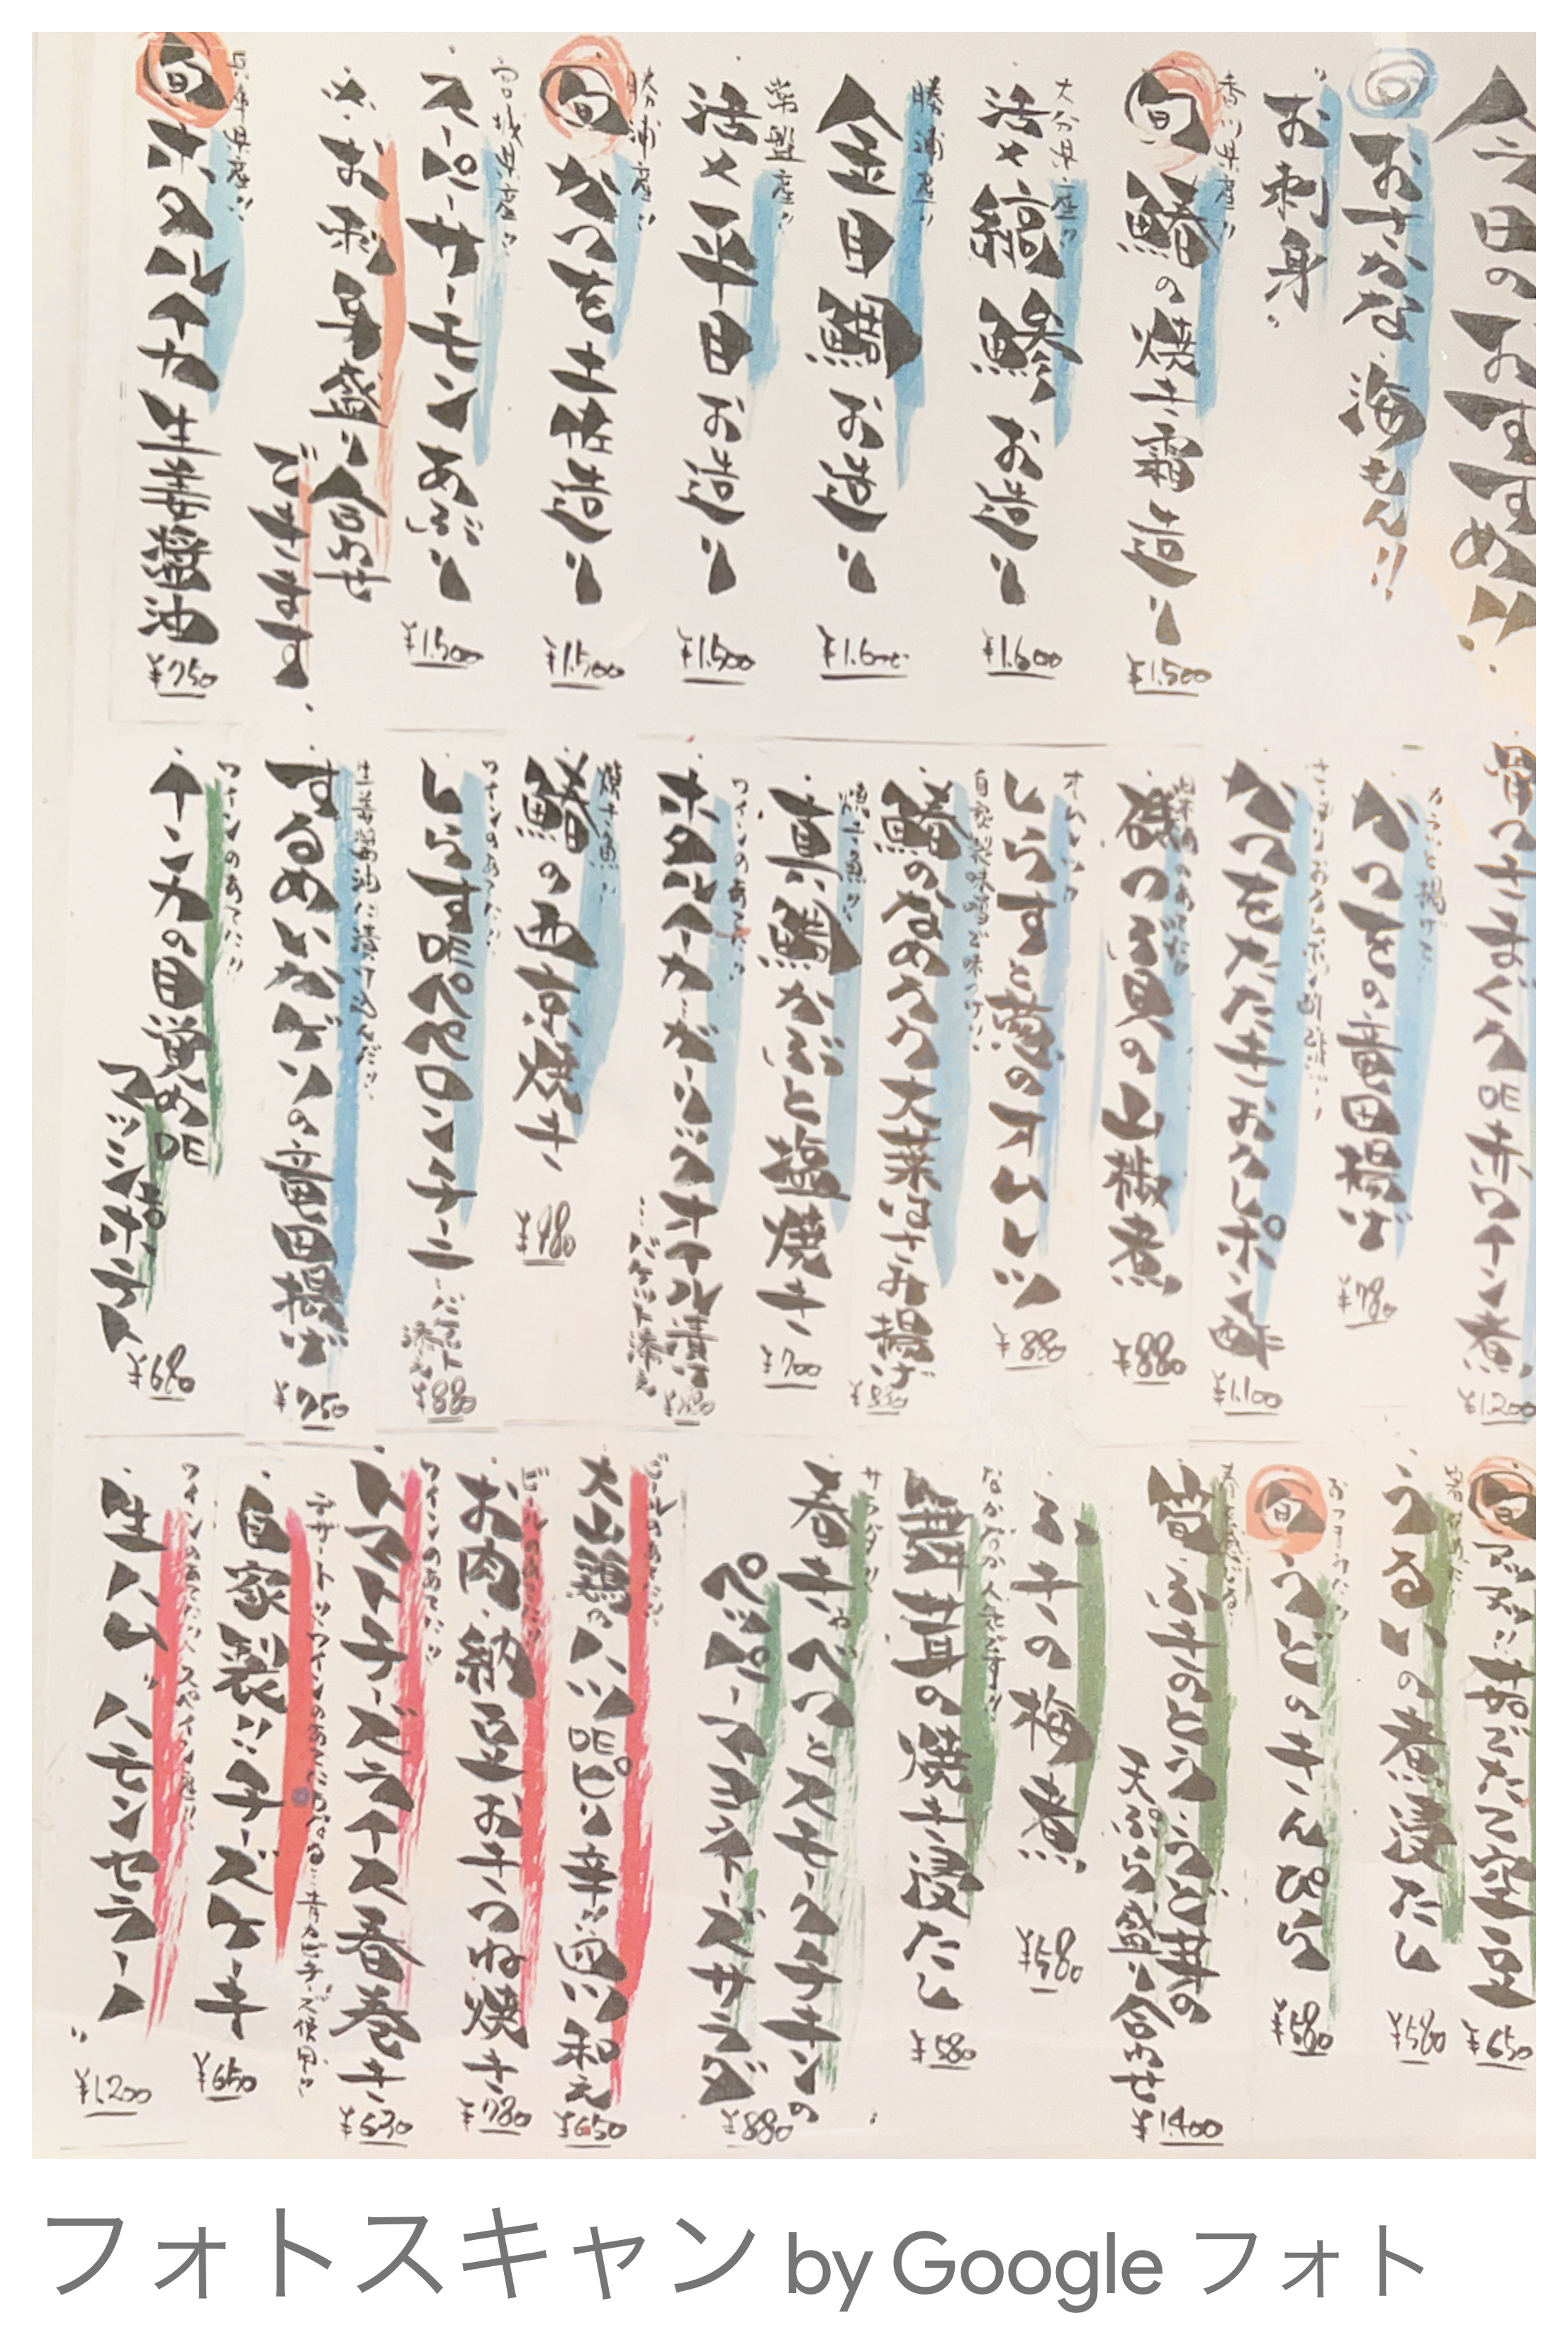 今日のおすすめ!!
◎おさかな、海もん!!
お刺身
香川県産!!
旬 鰆の焼き霜造り
¥1.500
大分県産!!
活〆縞鯵お造り
¥1.600
勝浦産!!
金目鯛お造り
¥1.600
常盤産!!
活〆平目お造り
¥1.500
勝浦産!!
旬 かつを土佐造り
¥1.500
宮城県産!!
スーパーサーモンあぶり
¥1.500
※お刺身盛り合わせ
できます
兵庫県産!!
旬 ホタルイカ生姜醤油
¥750
骨つきまぐろDE赤ワイン煮
¥1.200
カラッと揚げて
かつをの竜田揚げ
¥780
かつをたたきおろしポン酢
¥1.100
磯つぶ貝の山椒煮
¥880
オムレツ
しらすと葱のオムレツ
¥880
自家製味噌で味つけ!!
鰆のなめろう大葉はさみ揚げ
焼き魚!!
真鯛かぶと塩焼き
¥700
ワインのあてに!!
ホタルイカガーリックオイル漬け
…バケット添え
焼き魚!!
鰆の西京焼き
¥980
ワインのあてに!!
しらすDEペペロンチーニ
…バケット添え
¥880
生姜醤油に漬け込んだ!!
するめいかゲソの竜田揚げ
¥750
ワインのあてに!!
インカの目覚めDE
マッシュポテト
¥680
旬
¥650
うるいの煮浸だし
¥580
旬 うどのきんぴら
¥580
春を感じる
筍、ふきのとう、うど、丼の
天ぷら盛り合わせ
¥1.400
ふきの梅煮
¥580
なかなか人気です!!
舞茸の焼き浸だし
¥580
サラダ!!
春キャベツとスモークチキンの
ペッパーマヨネーズサラダ
¥880
ビールのあてに!!
大山鶏のハツDEピリ辛葱和え
¥650
ビールのあてに!!
お肉、納豆お키つね焼き
¥780
ワインのあてに!!
トマトチーズライス春巻き
¥630
デザート!!ワインのあてにもなる…青カビチーズ使用!!
自家製!!チーズケーキ
¥650
ワインのあてに!!スペイン産!!
生ハム"ハモンセラーノ"
¥1.200
フォトスキャン by Google フォト